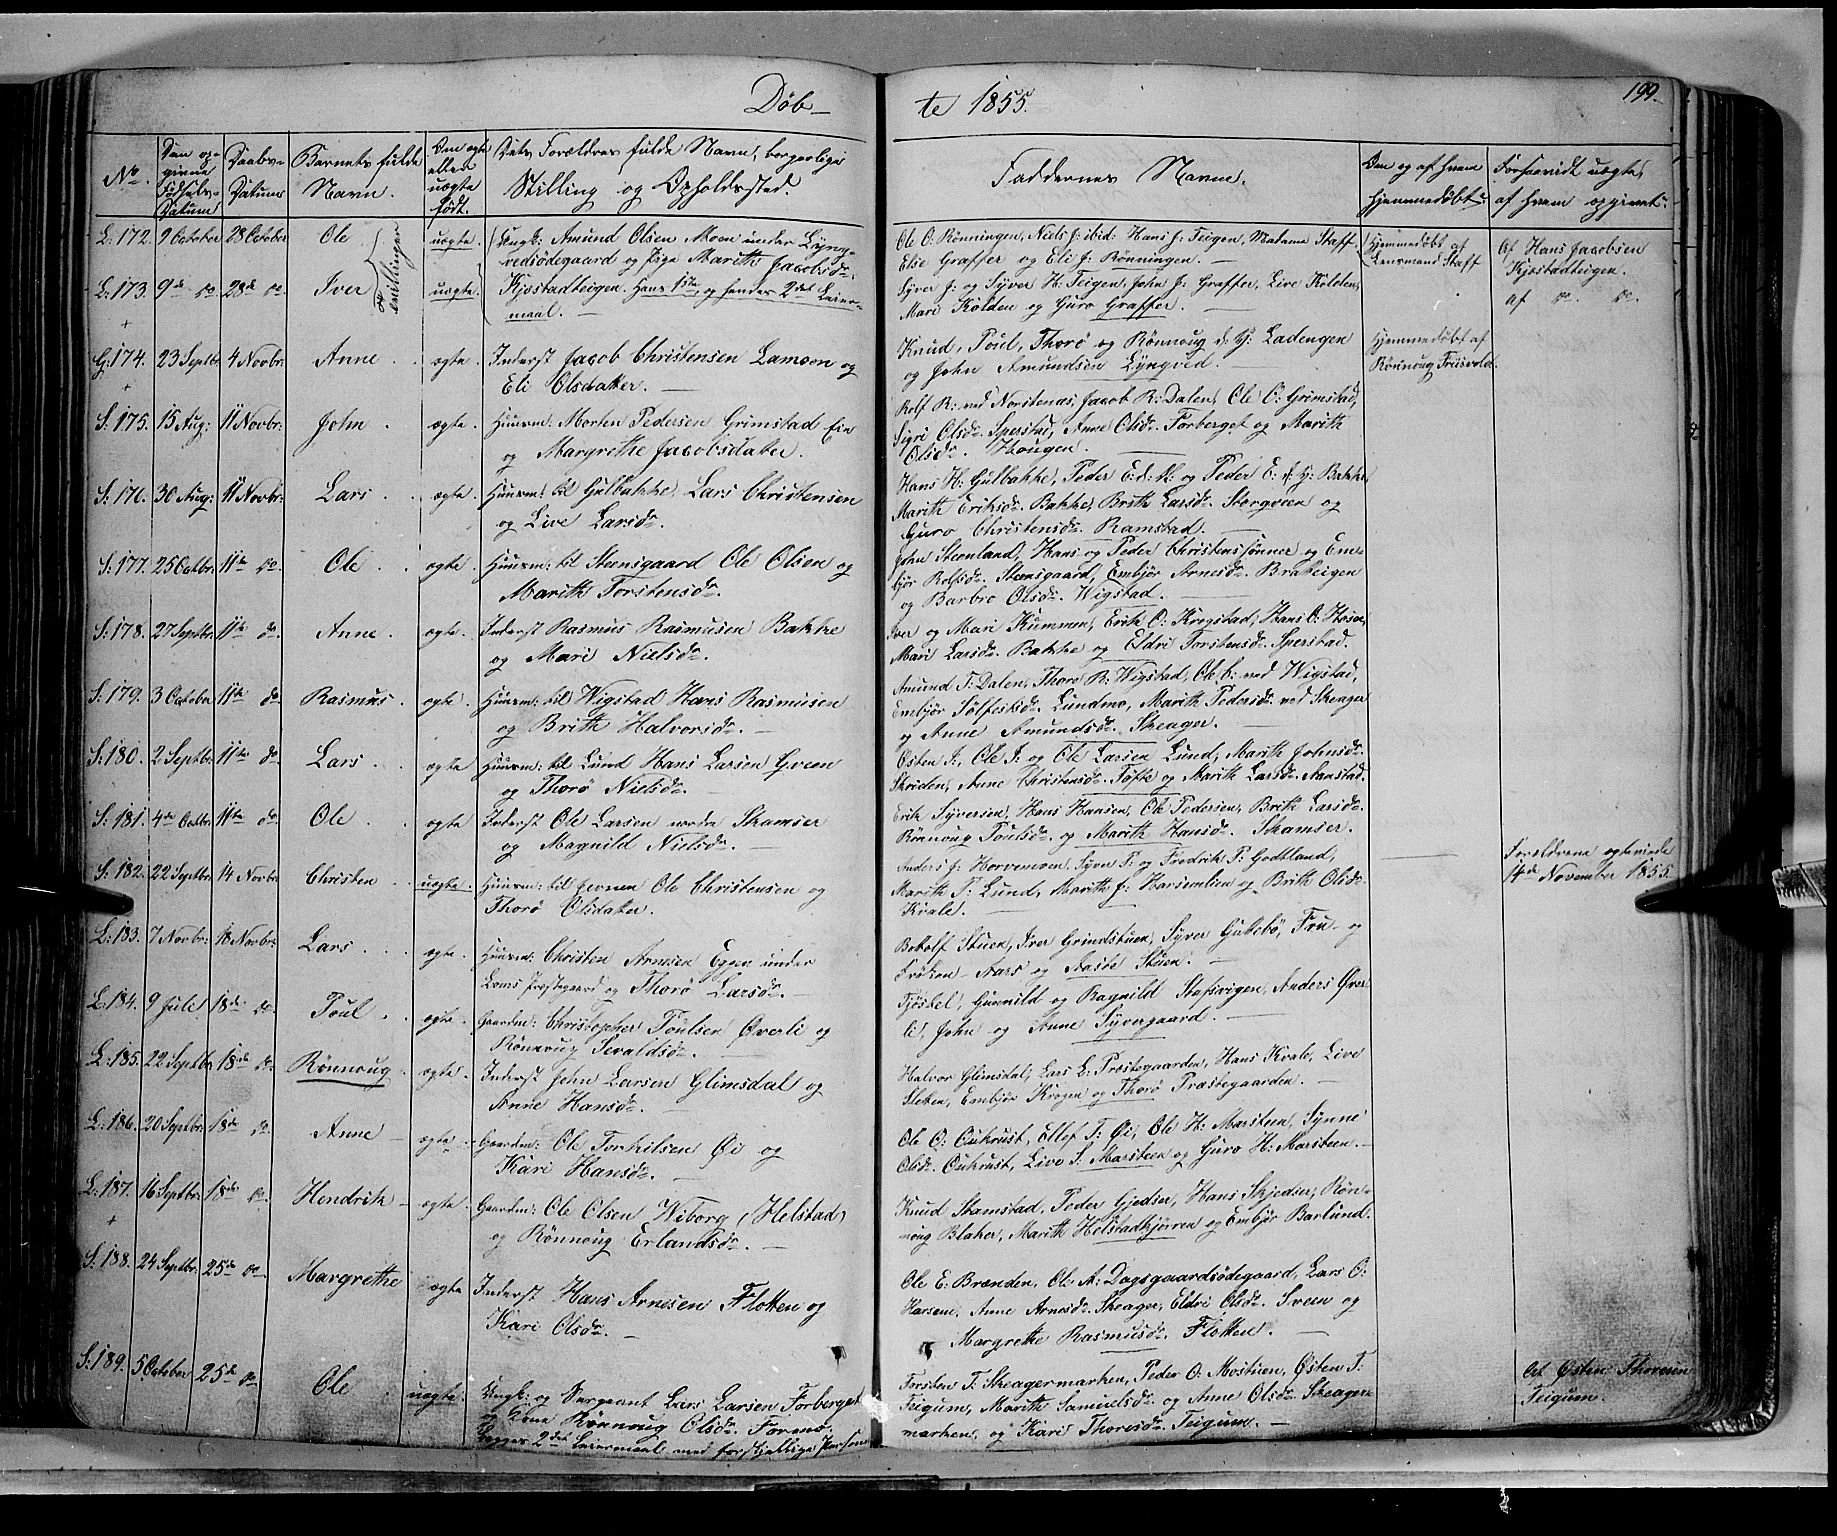 Døb-
te 1855.
199.
No.
Den op-
givne
Fødsels-
Datum
Daabs-
Datum
Barnets fulde
Navn.
Om ægte
eller
uægte
født.
Dets Forældres fulde Navn, borgerlige
Stilling og Opholdssted.
Faddernes Navne.
Om og af hvem
hjemmedøbt.
Forsaavidt uægte,
af hvem opgivet.
L: 172. 9 October 28 October Ole uægte. Ungk: Amund Olsen Moen under Lyng-
vedsødegaard og pige Marith Jacobsdr.
Tvillinger
Ole O: Rønningen, Niels J: ibid: Hans J: Teigen, Madame Staff
Elie Graffer og Eli J: Rønningen. —
Hjemmedøbt af
Lensmand Staff
Af Hans Jacobsen
Kjæstadteigen.
L: 173. 9de do 28de do. Iver uægte. Kjæstadteigen. Hans 1ste og hendes 2det Leier-
maal. —
Syver J: og Syver H: Teigen, John J: Graffer, Live Kolden,
Mari Kolden og Guro Graffer. —
af do. do.
+
G: 174. 23 Septbr. 4 Novbr. Anne. ægte. Inderst Jacob Christensen Lamoen og
Eli Olsdatter. —
Knud, Poul, Thorø og Rønnoug d: Y: Ladengen
og John Amundsen Lyngved. —
Hjemmedøbt af
Rønnoug Friisvold.
+
S: 175. 15 Aug: 11 Novbr: John. ægte. Huusm: Morten Pedersen Grimstad Eie
og Margrethe Jacobsdatter.
Rolf R: ved Norstenæs, Jacob R: Dalen, Ole O: Grimstad,
Sigri Olsdr. Sperstad, Anne Olsdr. Forberget og Marith
Olsdr. Hougen. —
S: 176. 30 Aug: 11 Novbr: Lars. ægte. Huusm: til Gulbakke, Lars Christensen
og Live Larsdr.
Hans H: Gulbakke, Peder E: d: Æ: og Peder E: d: Y: Bakke,
Marith Eriksdr. Bakke, Brith Larsdr. Storgveen og
Guro Christensdr. Ramstad. —
S: 177. 25 Octbr. 11te do. Ole. ægte. Huusm: til Steensgaard Ole Olsen og
Marith Torstensdr.
John Steenland, Hans og Peder Christenssønner og Em-
bjør Rolfsdr. Steensgaard, Embjør Arnesdr. Brateigen
og Barbro Olsdr. Wigstad. —
S: 178. 27 Septbr. 11te do. Anne. ægte. Inderst Rasmus Rasmusen Bakke
og Mari Nielsdr.
Iver og Mari Kummen, Erik O: Krogstad, Hans O: Hosar,
Mari Larsdr. Bakke og Eldri Torstensdr. Sperstad.
S: 179. 3 October 11te do Rasmus. ægte. Huusm: til Wigstad Hans Rasmusen
og Brith Halvorsdr. —
Amund T: Dalen, Thore R: Wigstad, Ole C: ved Wigstad,
Embjør Sølfestsdr. Lundmo, Marith Pedersdr. ved Skeager
og Anne Amundsdr. Skeager. —
S: 180. 2 Septbr. 11te do Lars. ægte Huusm: til Lund Hans Larsen Gveen
og Thorø Nielsdr.
Østen J:, Ole J: og Ole Larsen Lund, Marith Johnsdr.
Skriden, Anne Christensdr. Tofte og Marith Larsdr. Aanstad.
S: 181. 4de Octbr. 11te do. Ole. ægte Inderst Ole Larsen nordre Skamser
og Magnild Nielsdr. —
Erik Syversen, Hans Hansen, Ole Pedersen, Brith Larsdr.
Rønnoug Poulsdr. og Marith Hansdr. Skamser.
S: 182. 22 Septbr. 14 Novbr. Christen uægte. Huusm: til Gveen Ole Christensen og
Thorø Olsdatter.
Anders J: Horvemoen, Syver P: og Fredrik P: Godtland,
Marith T: Lund, Marith J: Harsemlien og Brith Olsdr.
Kvale. —
Forældrene ægteviede
14de November 1855.
L: 183. 7 Novbr: 18 Novbr: Lars. ægte. Huusm: Christen Arnesen Eggen under
Loms Præstegaard og Thorø Larsdr. —
Botolf Stuen, Iver Grindstuen, Syver Gakkebø, Fru- og
Frøken Aars og Aaste Stuen. —
L: 184. 9 Juli 18de do. Poul. ægte. Gaardm: Christopher Poulsen Øverli og
Rønnoug Sevaldsdr. —
Tjøstel, Gunnild og Ragnild Stafsvigen, Anders Øver-
li, John og Anne Syvergaard. —
L: 185. 22 Septbr. 18de do. Rønnoug. ægte. Inderst John Larsen Glimsdal og
Anne Hansdr. —
Halvor Glimsdal, Lars L: Præstegaarden, Hans Kvale, Live
Sletten, Embjør Krogen og Thorø Præstegaarden. —
L: 186. 20 Septbr. 18de do. Anne ægte. Gaardm: Ole Torkilsen Øi og
Kari Hansdr. —
Ole O: Oukrust, Ellef T: Øi, Ole H: Marsteen, Synne
Olsdr. Oukrust, Live S: Marsteen og Guro H: Marsteen. —
L: 187. 16 Septbr. 18de do. Hendrik ægte. Gaardm: Ole Olsen Wiborg (Helstad)
og Rønnoug Erlandsdr. —
Knud Stamstad, Peder Gjedser, Hans Skjedser, Røn-
noug Blaker, Marith Helstadkjørren og Embjør Barlund.
+
S: 188. 24 Septbr. 25de do Margrethe ægte Inderst Hans Arnesen Flotten og
Kari Olsdr. —
Ole E: Brænden, Ole A: Dagsgaardsødegaard, Lars O:
Harsem, Anne Arnesdr. Skeager, Eldri Olsdr. Sveen og
Margrethe Rasmusdr. Flotten. —
S: 189. 5 October 25de do Ole uægte. Ungk: og Sergeant Lars Larsen Forberget
og Kone Rønnoug Olsdr.
begges 2det Leiermaal med forskjellige Personer
Torsten T: Skeagermarken, Peder O: Mostuen, Østen T:
Teigum, Marith Samuelsdr. og Anne Olsdr. Skeager-
marken, og Kari Thoresdr. Teigum. —
Af Østen Thoresen
Teigum.